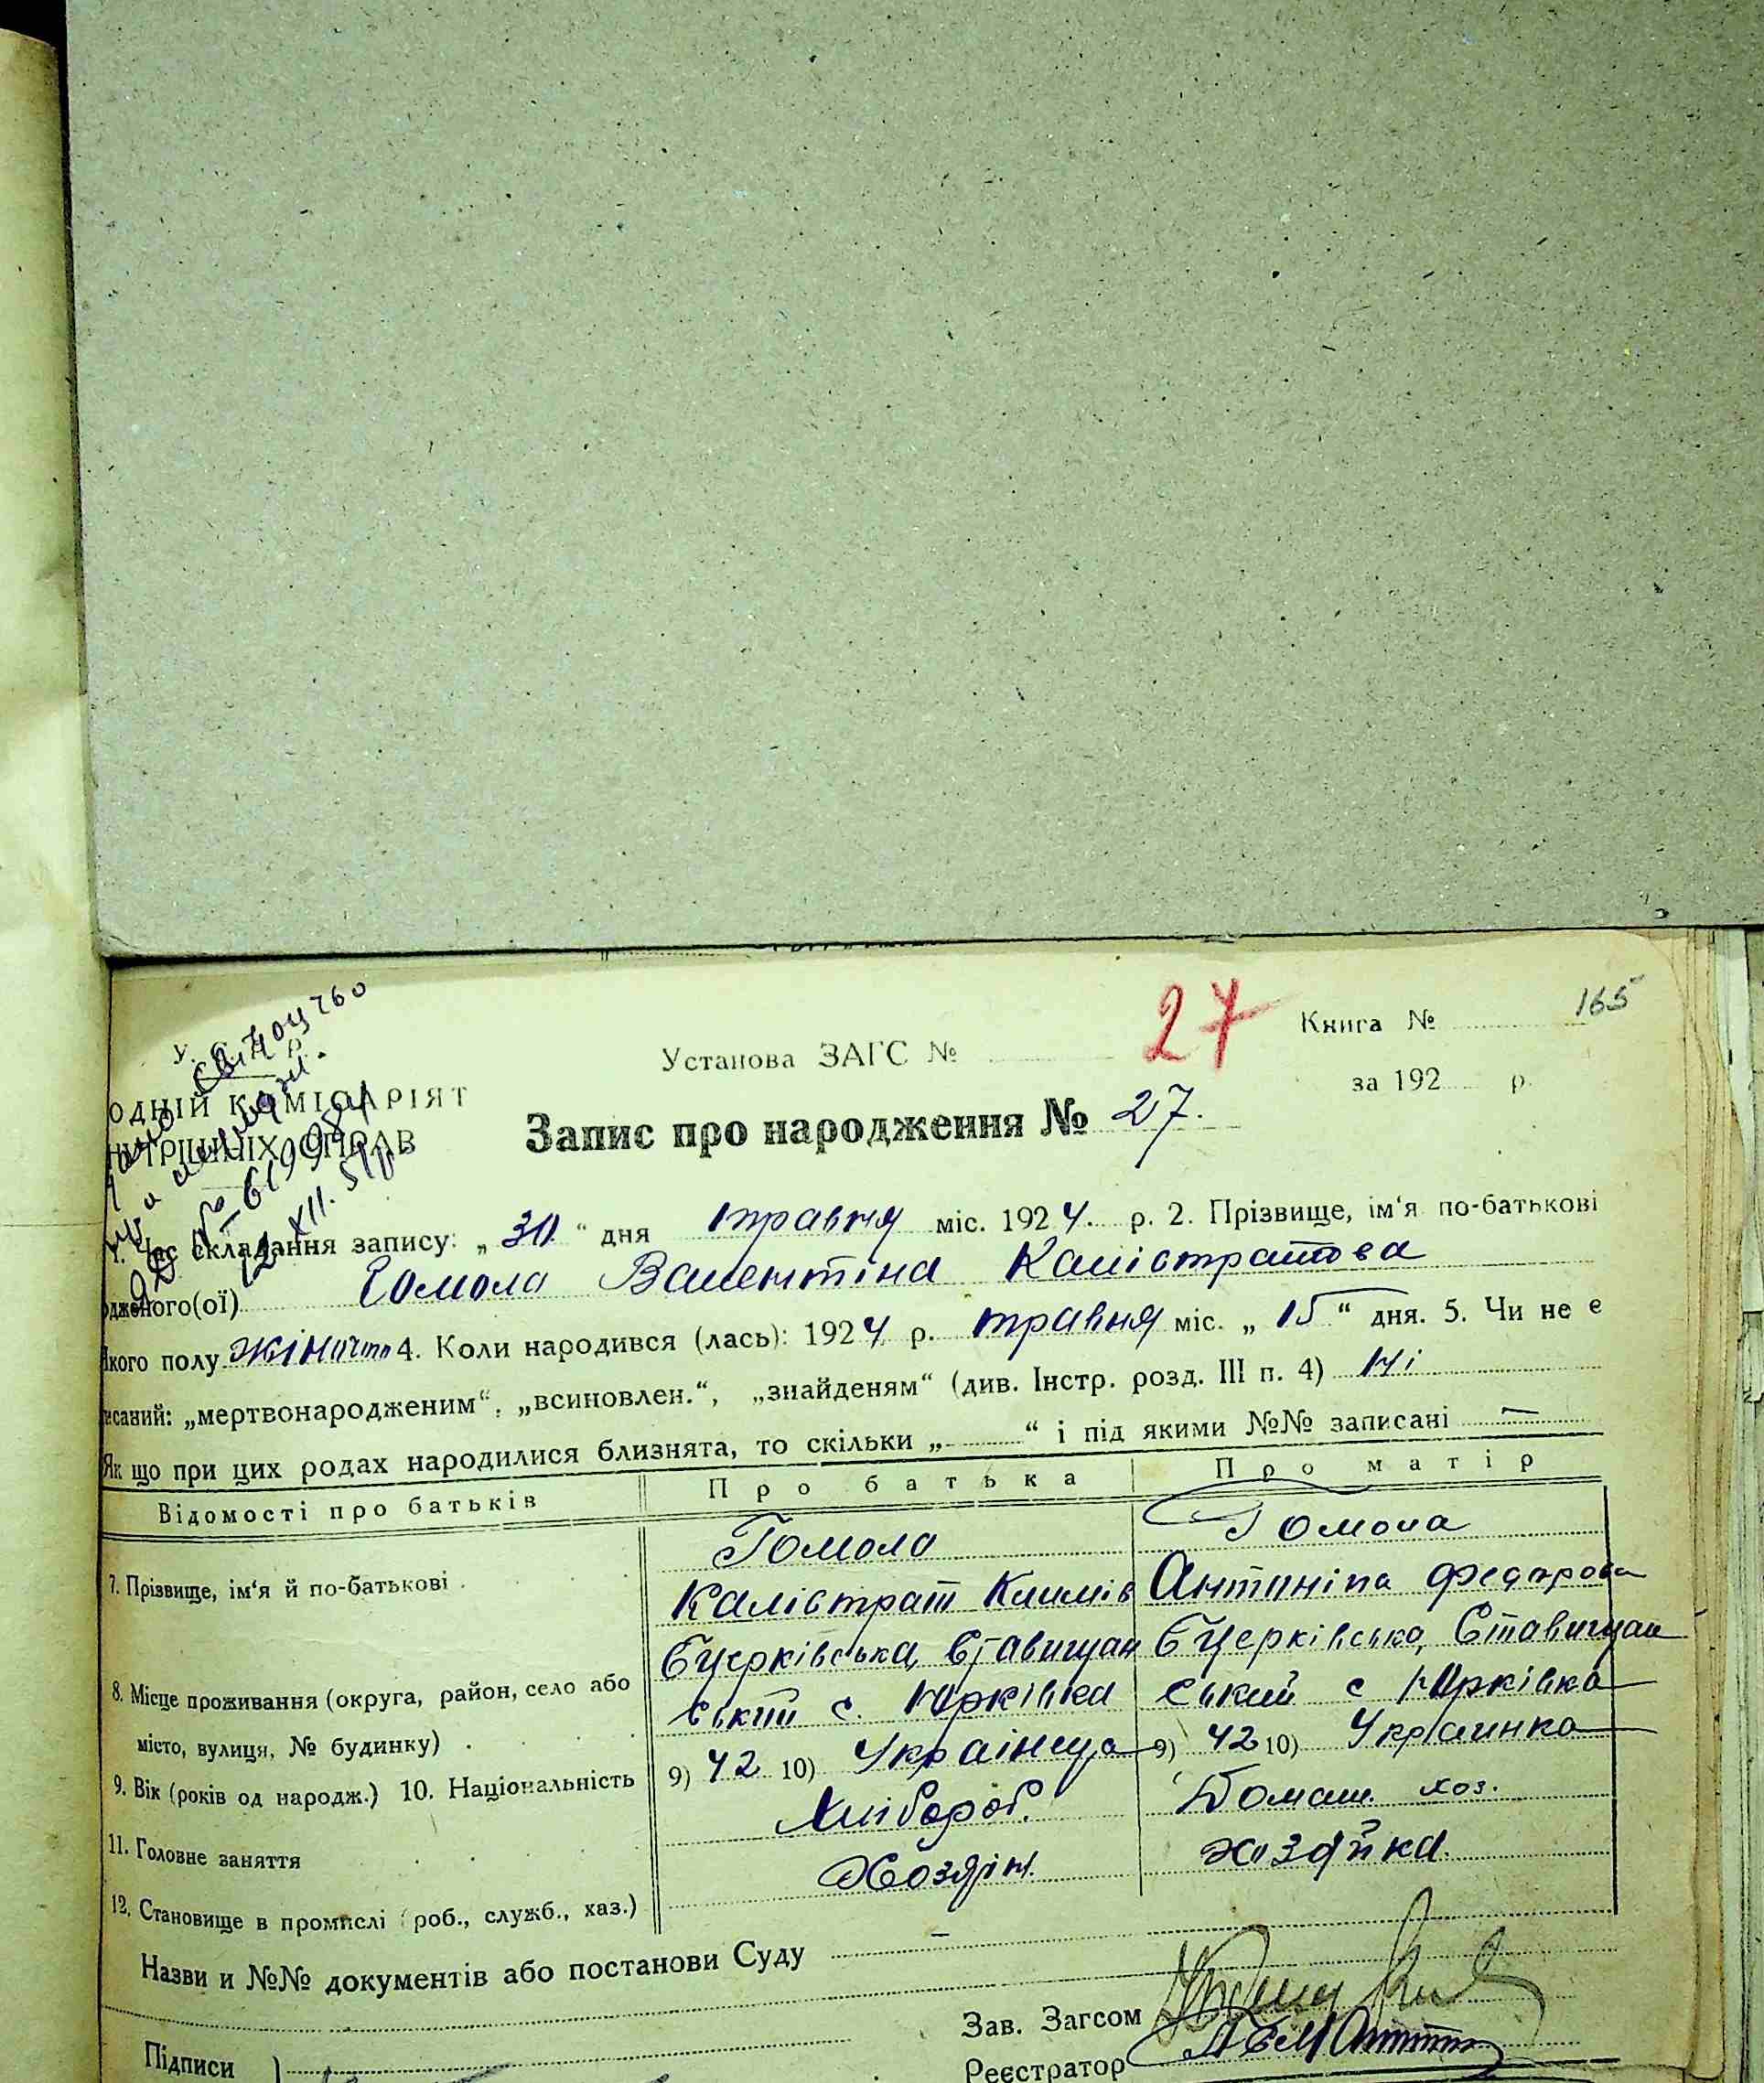 165
27
Книга №
У. С. Р. Р.
Установа ЗАГС №
за 192 р.
ОДНІЙ КОМІСАРІЯТ
НУТРІШНІХ СПРАВ
Запис про народження № 27.
свідоцтво
12 XII.
Час складання запису: „30“ дня травня міс. 1924. р. 2. Прізвище, ім‘я по-батькові
одженого(ої) Гомола Валентіна Калістратова
якого полу жіночи 4. Коли народився (лась): 1924 р. травня міс. „15“ дня. 5. Чи не є
исаний: „мертвонародженим“, „всиновлен.“, „знайденям“ (див. Інстр. розд. III п. 4) Ні
Як що при цих родах народилися близнята, то скільки „—“ і під якими №№ записані —
Відомості про батьків Про батька Про матір
Гомола Гомола
7. Прізвище, ім‘я й по-батькові
Калістрат Климів Антоніна Федорова
Бцерківська, Ставищан Бцерківська, Ставищан
8. Місце проживання (округа, район, село або
ський с. Юрківка ський с Юрківка
місто, вулиця, № будинку)
9. Вік (років од народж.) 10. Національність 9) 42 10) Українця 9) 42 10) Украинка
11. Головне заняття Хлібороб. Домаш. хоз.
12. Становище в промислі (роб., служб., хаз.) Хозяїн. хозяйка.
Назви и №№ документів або постанови Суду —
Зав. Загсом
Підписи
Реєстратор